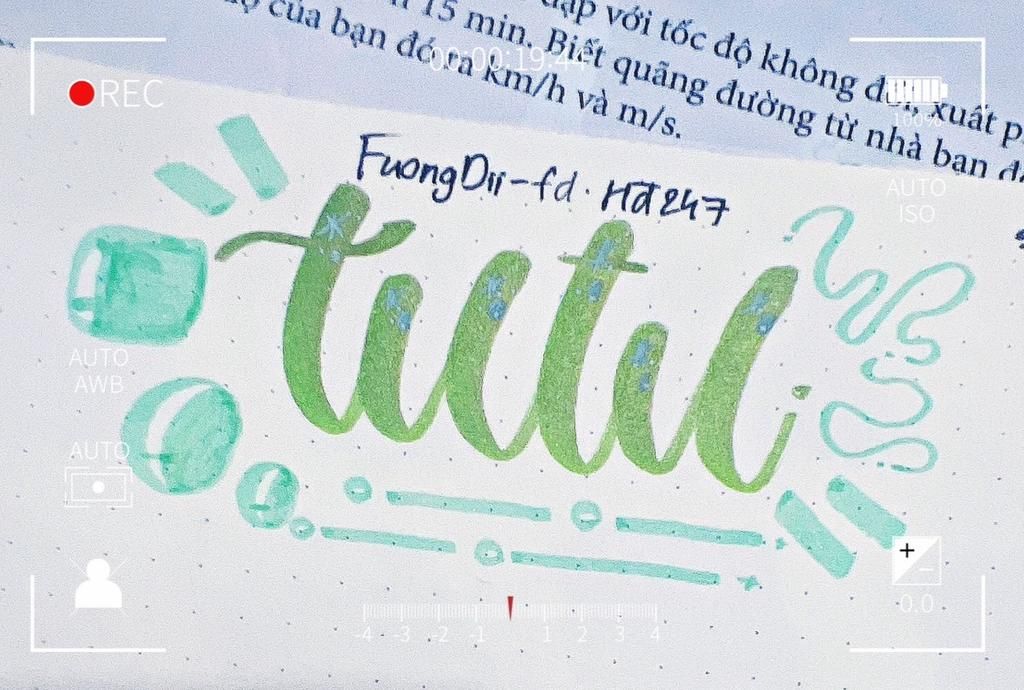 đạp với tốc độ không đổi, xuất p
15 min. Biết quãng đường từ nhà bạn đ
của bạn đó ra km/h và m/s.
00:00:19:44
REC
100%
FuongDii-fd. Hđ247
AUTO
ISO
tutu
AUTO
AWB
AUTO
+
-
0.0
-4 -3 -2 -1 1 2 3 4